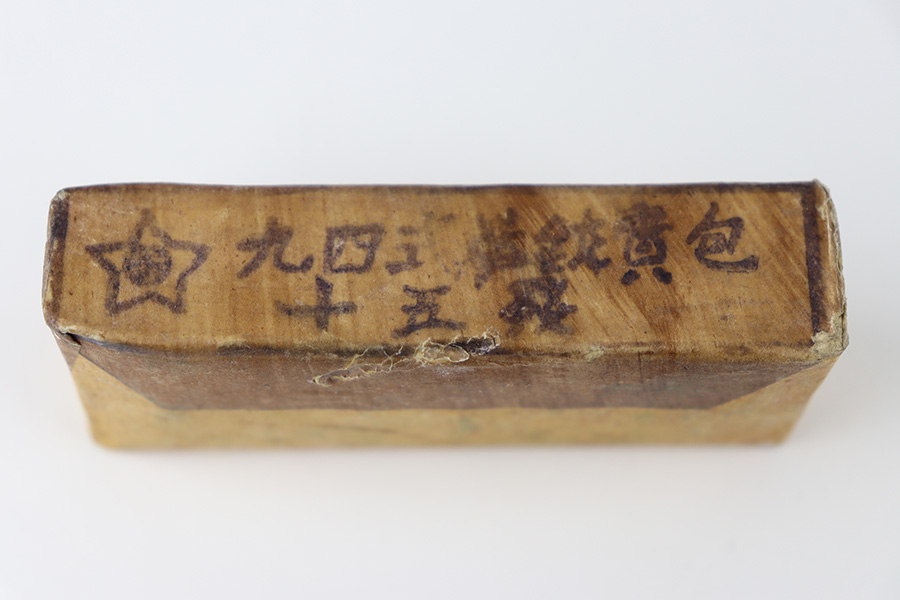 九四式拳銃實包
十五發